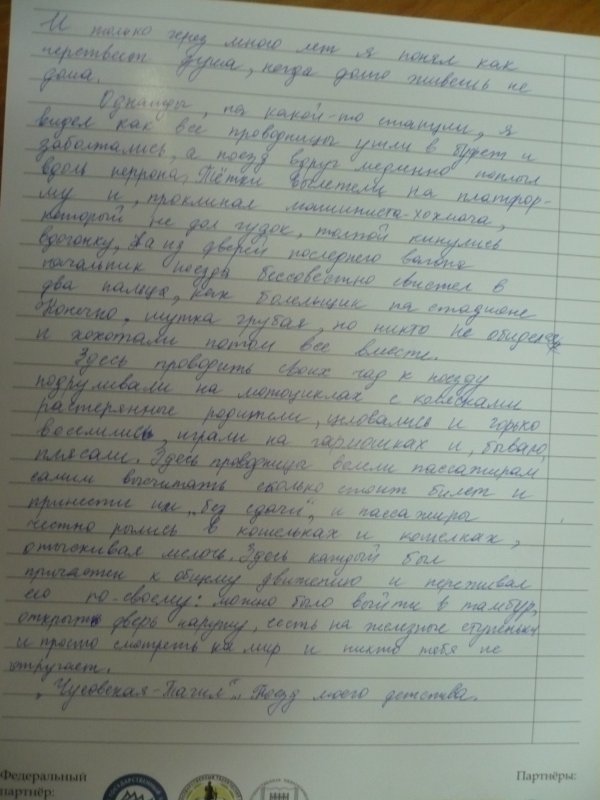 И только через много лет я понял как
черствеет душа, когда долго живешь не
дома.
Однажды, на какой-то станции, я
видел как все проводницы ушли в буфет и
заболтались, а поезд вдруг медленно поплыл
вдоль перрона. Тётки вылетели на платфор-
му и, проклиная машиниста-хохмача,
который не дал гудок, толпой кинулись
вдогонку, а из дверей последнего вагона
начальник поезда бессовестно свистел в
два пальца, как болельщик на стадионе
Конечно, шутка грубая, но никто не обиделся,
и хохотали потом все вместе.
Здесь проводить своих чад к поезду
подруливали на мотоциклах с колясками
растерянные родители, целовались и горько
веселились, играли на гармошках и, бывало,
плясали. Здесь проводницы велели пассажирам
самим высчитать сколько стоит билет и
принести им „без сдачи", и пассажиры
честно рылись в кошельках и кошелках,
отыскивая мелочь. Здесь каждый был
причастен к общему движению и переживал
его по-своему: можно было выйти в тамбур,
открыть дверь наружу, сесть на железные ступеньки
и просто смотреть на мир и никто тебя не
отругает.
„Чусовская-Тагил"... Поезд моего детства.
Федеральный
партнёр:
Партнёры: